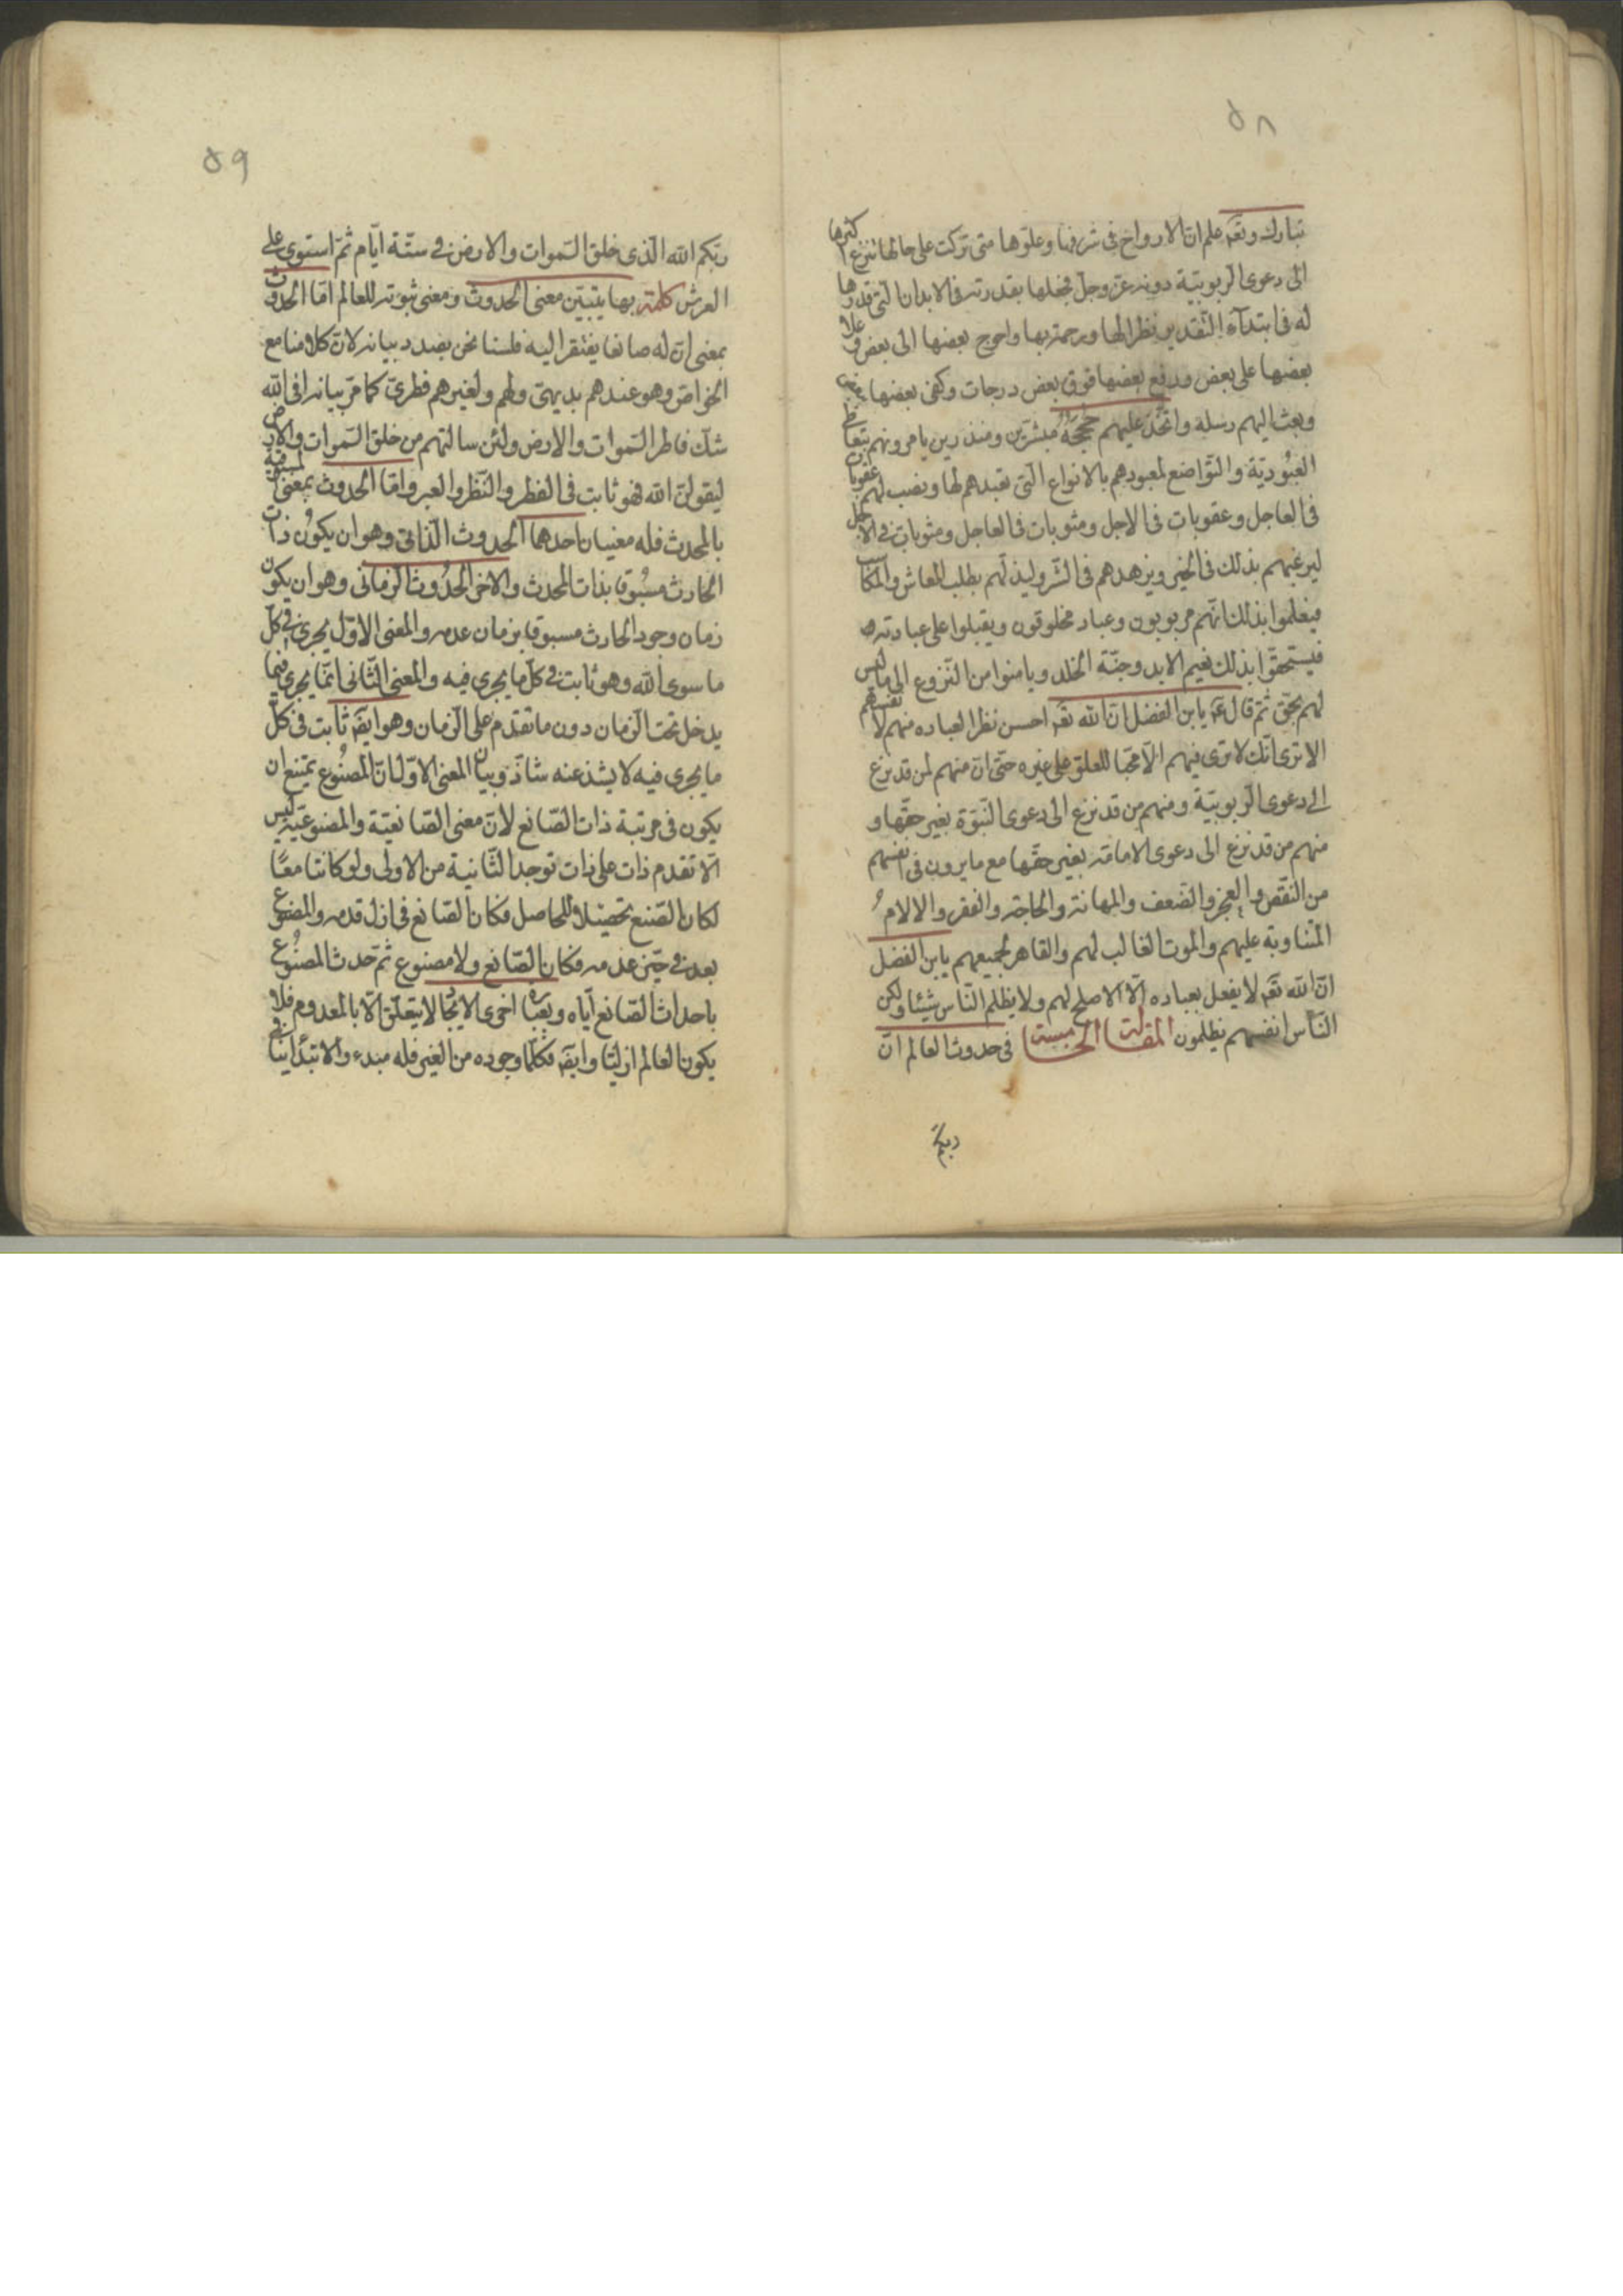 ٥٨
تبارك وتعه علم ان الارواح فى شرفها وعلوّها متى تركت على حالها نزع اكثرها
الى دعوى الربوبيّة دونه عزّ وجلّ فجعلها بقدرته فى الابدان الّتى قدرها
له فى ابتدآء التّقدير نظرا لها ورحمة بها واحوج بعضها الى بعض وعلا
بعضها على بعض ورفع بعضها فوق بعض درجات وكفى بعضها ببعض
وبعث اليهم رسله واتّخذ عليهم حججه مبشّرين ومنذرين يامرونهم بتعاطى
العبُوديّة والتّواضع لمعبودهم بالانواع الّتى تعبدهم لها ونصب لهم عقوبات
فى العاجل وعقوبات فى الاجل ومثوبات فى العاجل ومثوبات فى الاجل
ليرغبهم بذلك فى الخير ويزهدهم فى الشّر وليذلّهم بطلب المعاش والمكاسب
فيعلموا بذلك انّهم مربوبون وعباد مخلوقون ويقبلوا على عبادته
فيستحقّوا بذلك نعيم الابد وجنّة الخلد ويامنوا من النّزوع الى ما ليس
لهم بحقّ ثم قال عه يابن الفضل انّ الله تعه احسن نظرا لعباده منهم لانفسهم
الا ترى انّك لا ترى فيهم الّا محبّا للعلوّ على غيره حتّى ان منهم لمن قد نزع
الى دعوى الرّبوبيّة ومنهم من قد نزع الى دعوى النّبوّة بغير حقّها و
منهم من قد نزع الى دعوى الامامة بغير حقّها مع ما يرون فى انفسهم
من النّقص والعجز والضّعف والمهانة والحاجة والفقر والالام
المتناوبة عليهم والموت الغالب لهم والقاهر لجميعهم يابن الفضل
انّ الله تعه لا يفعل بعباده الّا الاصلح لهم ولا يظلم النّاس شيئا ولكن
النّاس انفسهم يظلمون المقالة الخامسة فى حدوث العالم انّ
ربّكم
٥٩
ربّكم الله الّذى خلق السّموات والارض فى ستّة ايّام ثمّ استوى على
العرش كلمة بها يتبيّن معنى الحدوث ومعنى ثبوته للعالم امّا الحدوث
بمعنى ان له صانعا يفتقر اليه فلسنا نحن بصدد بيانه لانّ كلامنا مع
الخواصّ وهو عندهم بديهىّ ولهم ولغيرهم فطرىّ كما مرّ بيانه افى الله
شكّ فاطر السّموات والارض ولئن سالتهم من خلق السّموات والارض
ليقولنّ الله فهو ثابت فى الفطر والنّظر والعبر وامّا الحدوث بمعنى المسبوقيّة
بالمحدث فله معنيان احدهما الحدوث الذّاتى وهو ان يكون ذات
الحادث مسبُوقا بذات المحدث والاخر الحدُوث الزّمانى وهو ان يكون
زمان وجود الحادث مسبوقا بزمان عدمه والمعنى الاوّل يجرى فى كلّ
ما سوى الله وهو ثابت فى كلّ ما يجرى فيه والمعنى الثّانى انّما يجرى فيما
يدخل تحت الزّمان دون ما تقدّم على الزّمان وهو ايضه ثابت فى كلّ
ما يجرى فيه لا يشذ عنه شاذّ وبيان المعنى الاوّل انّ المصنُوع يمتنع ان
يكون فى مرتبة ذات الصّانع لانّ معنى الصّانعيّة والمصنوعيّة ليس
الّا تقدم ذات على ذات توجد الثّانية من الاولى ولو كانتا معًا
لكان الصّنع تحصيلا للحاصل فكان الصّانع فى ازل قدمه والمصنوع
بعد فى حيّز عدمه فكان الصّانع ولا مصنوع ثمّ حدث المصنُوع
باحداث الصّانع ايّاه وبعبارة اخرى الايجاد لا يتعلّق الّا بالمعدوم فلا
يكون العالم ازليّا وايضه فكلّما وجوده من الغير فله مبدء والابتداء ينافى